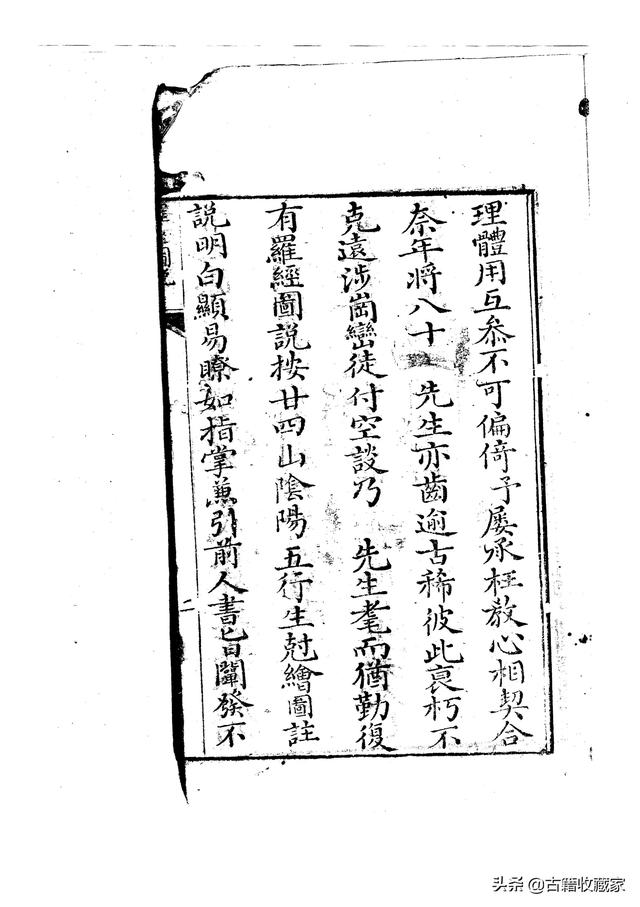 理體用互叅不可偏倚予屡承枉教心相契合
奈年将八十 先生亦齒逾古稀彼此衰朽不
克遠涉崗巒徒付空談乃 先生耄而猶勤復
有羅經圖説按廿四山陰陽五行生尅繪圖註
説明白顯易瞭如指掌兼引前人書旨闡發不
二
頭条 @古籍收藏家